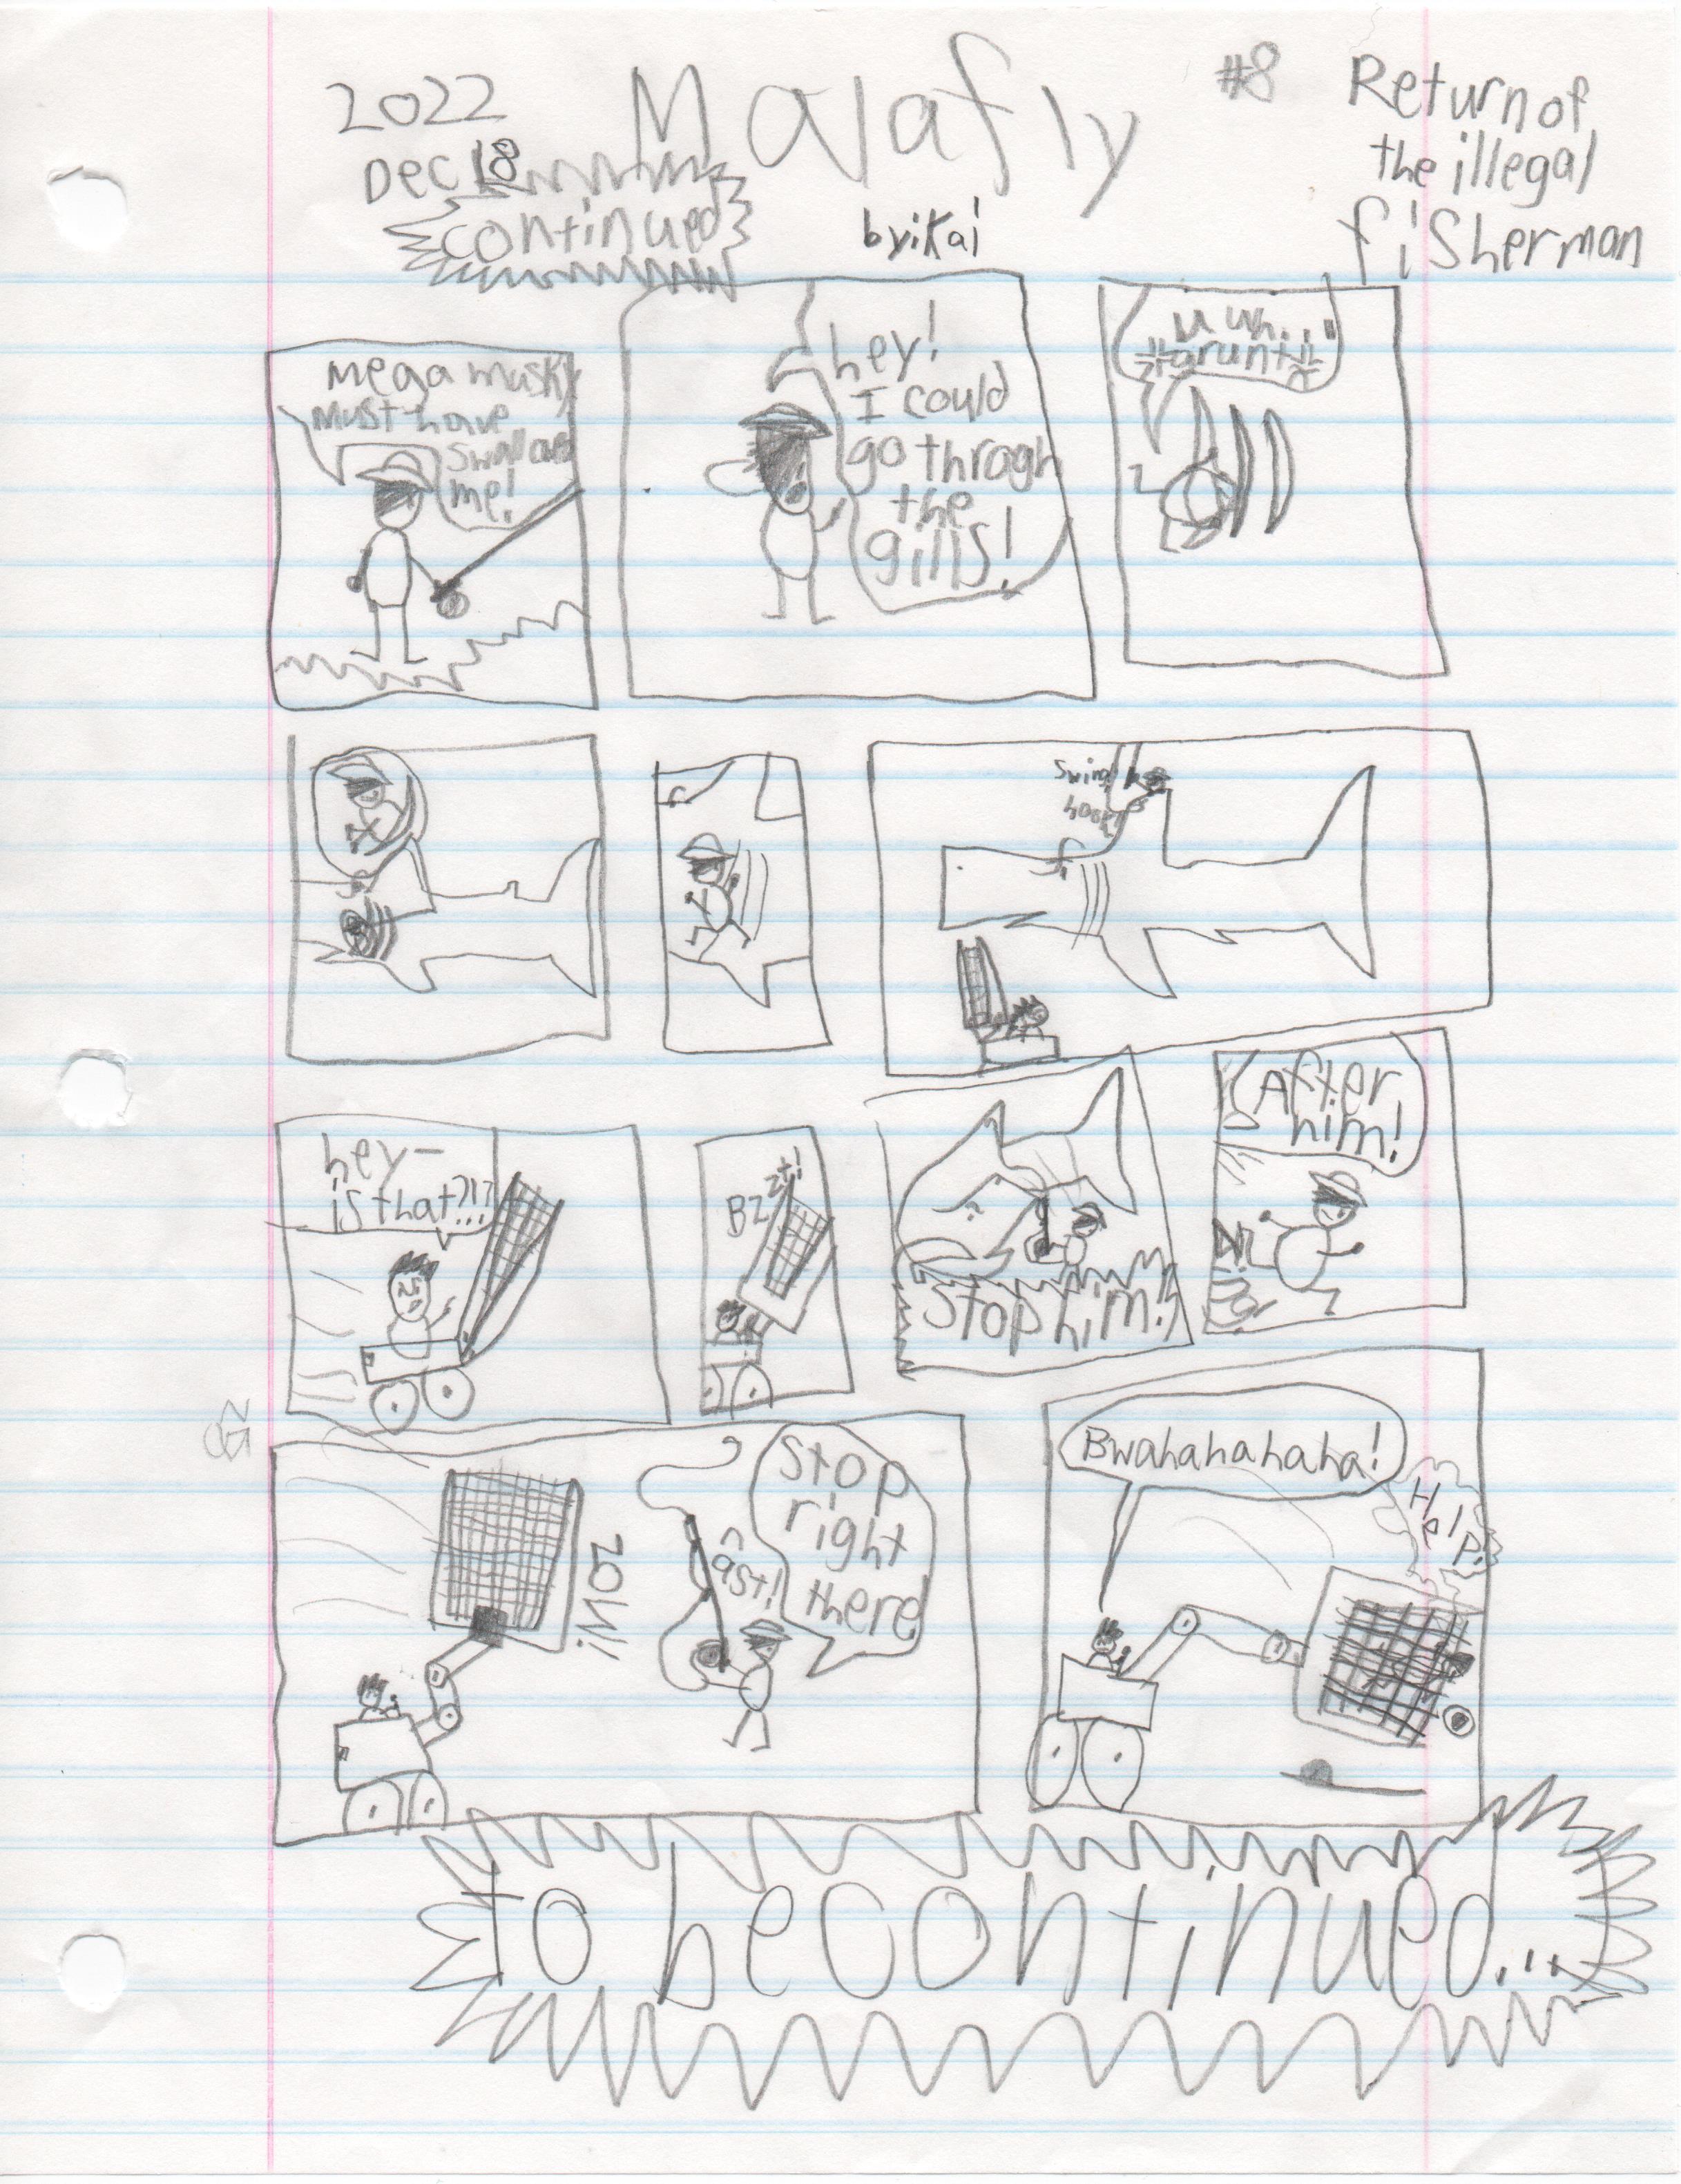 2022
Dec 18
continued
Malafly
by ikai
#8
Return of
the illegal
fisherman
Mega musky
must have
swallowed
me!
hey!
I could
go thragh
the
gills!
u uh...
#grunt#
swing
hook!
hey-
is that?!!?
BZ
zt!
Stop him!
After
him!
ZOM!
cast!
Stop
right
there
Bwahahahaha!
Help!
to be continued...